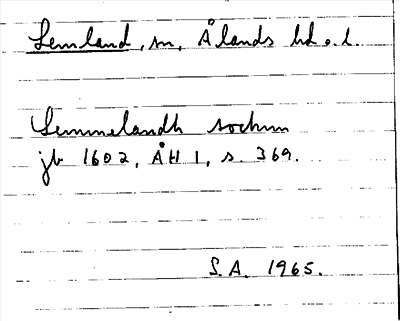 Lemland, sn, Ålands hd o. l.
Lemmelandh sochnn
jb 1602, ÅH 1, s. 369.
S.A. 1965.